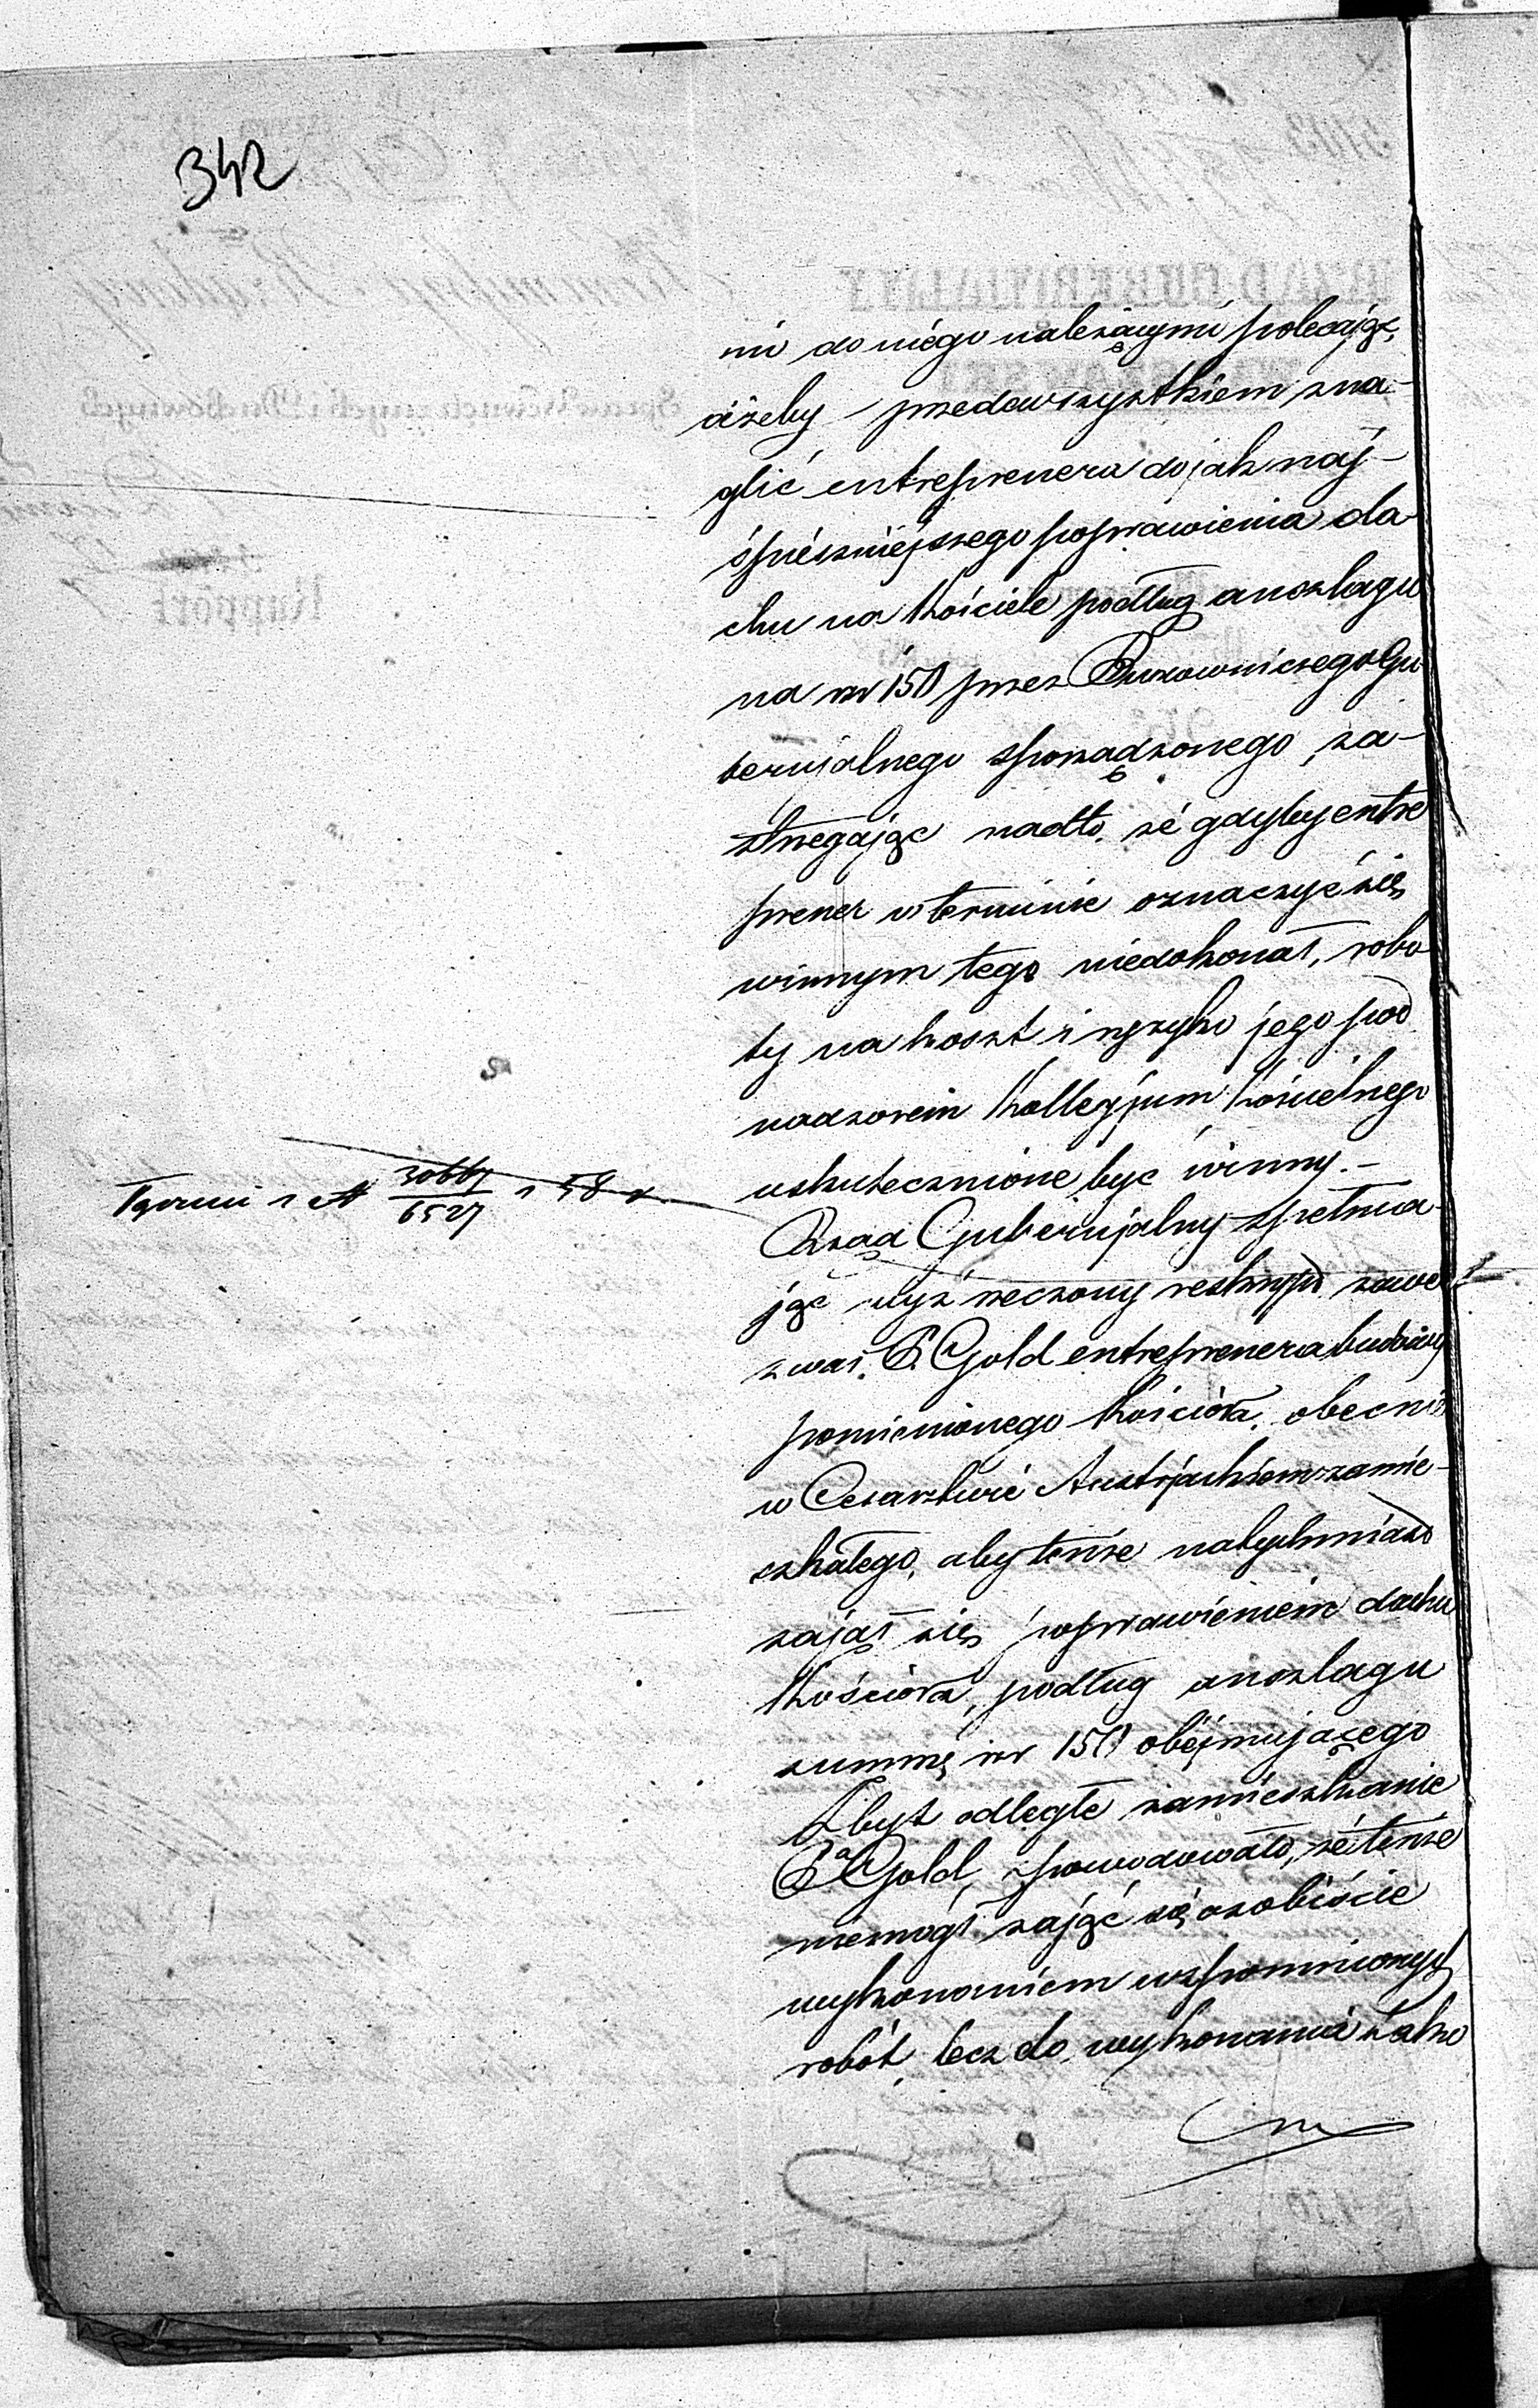 342
mi do niego należącymi polecając,
ażeby przedewszystkiem zna-
glić entreprenera do jak naj-
śpieszniejszego poprawienia da
chu na Kościele podług anszlagu
na rsr 150 przez Budowniczego Gu
bernijalnego sporządzonego, za-
strzegając nadto, że gdyby entre
prener w terminie oznaczyć się
winnym tego niedokonał, robo
ty na koszt i ryzyko jego pod
nadzorem Kollegjum Kościelnego
uskutecznione być winny. –
30667
6527
58 r.
Rząd Gubernijalny spełnia-
jąc wyż rzeczony reskrypt zawe
zwał P. Gold entreprenera budowy
pomienionego Kościoła, obecnie
w Cesarstwie Austrjackiem zamie-
szkałego, aby tenże natychmiast
zajął się poprawieniem dachu
Kościoła, podług anszlagu
summę rsr 150 obejmującego
Zbyt odległe zamieszkanie
Pa Gold, spowodowało, że tenże
niemógł zająć się osobiście
wykonaniem wspomnionych
robót, lecz do wykonania tako